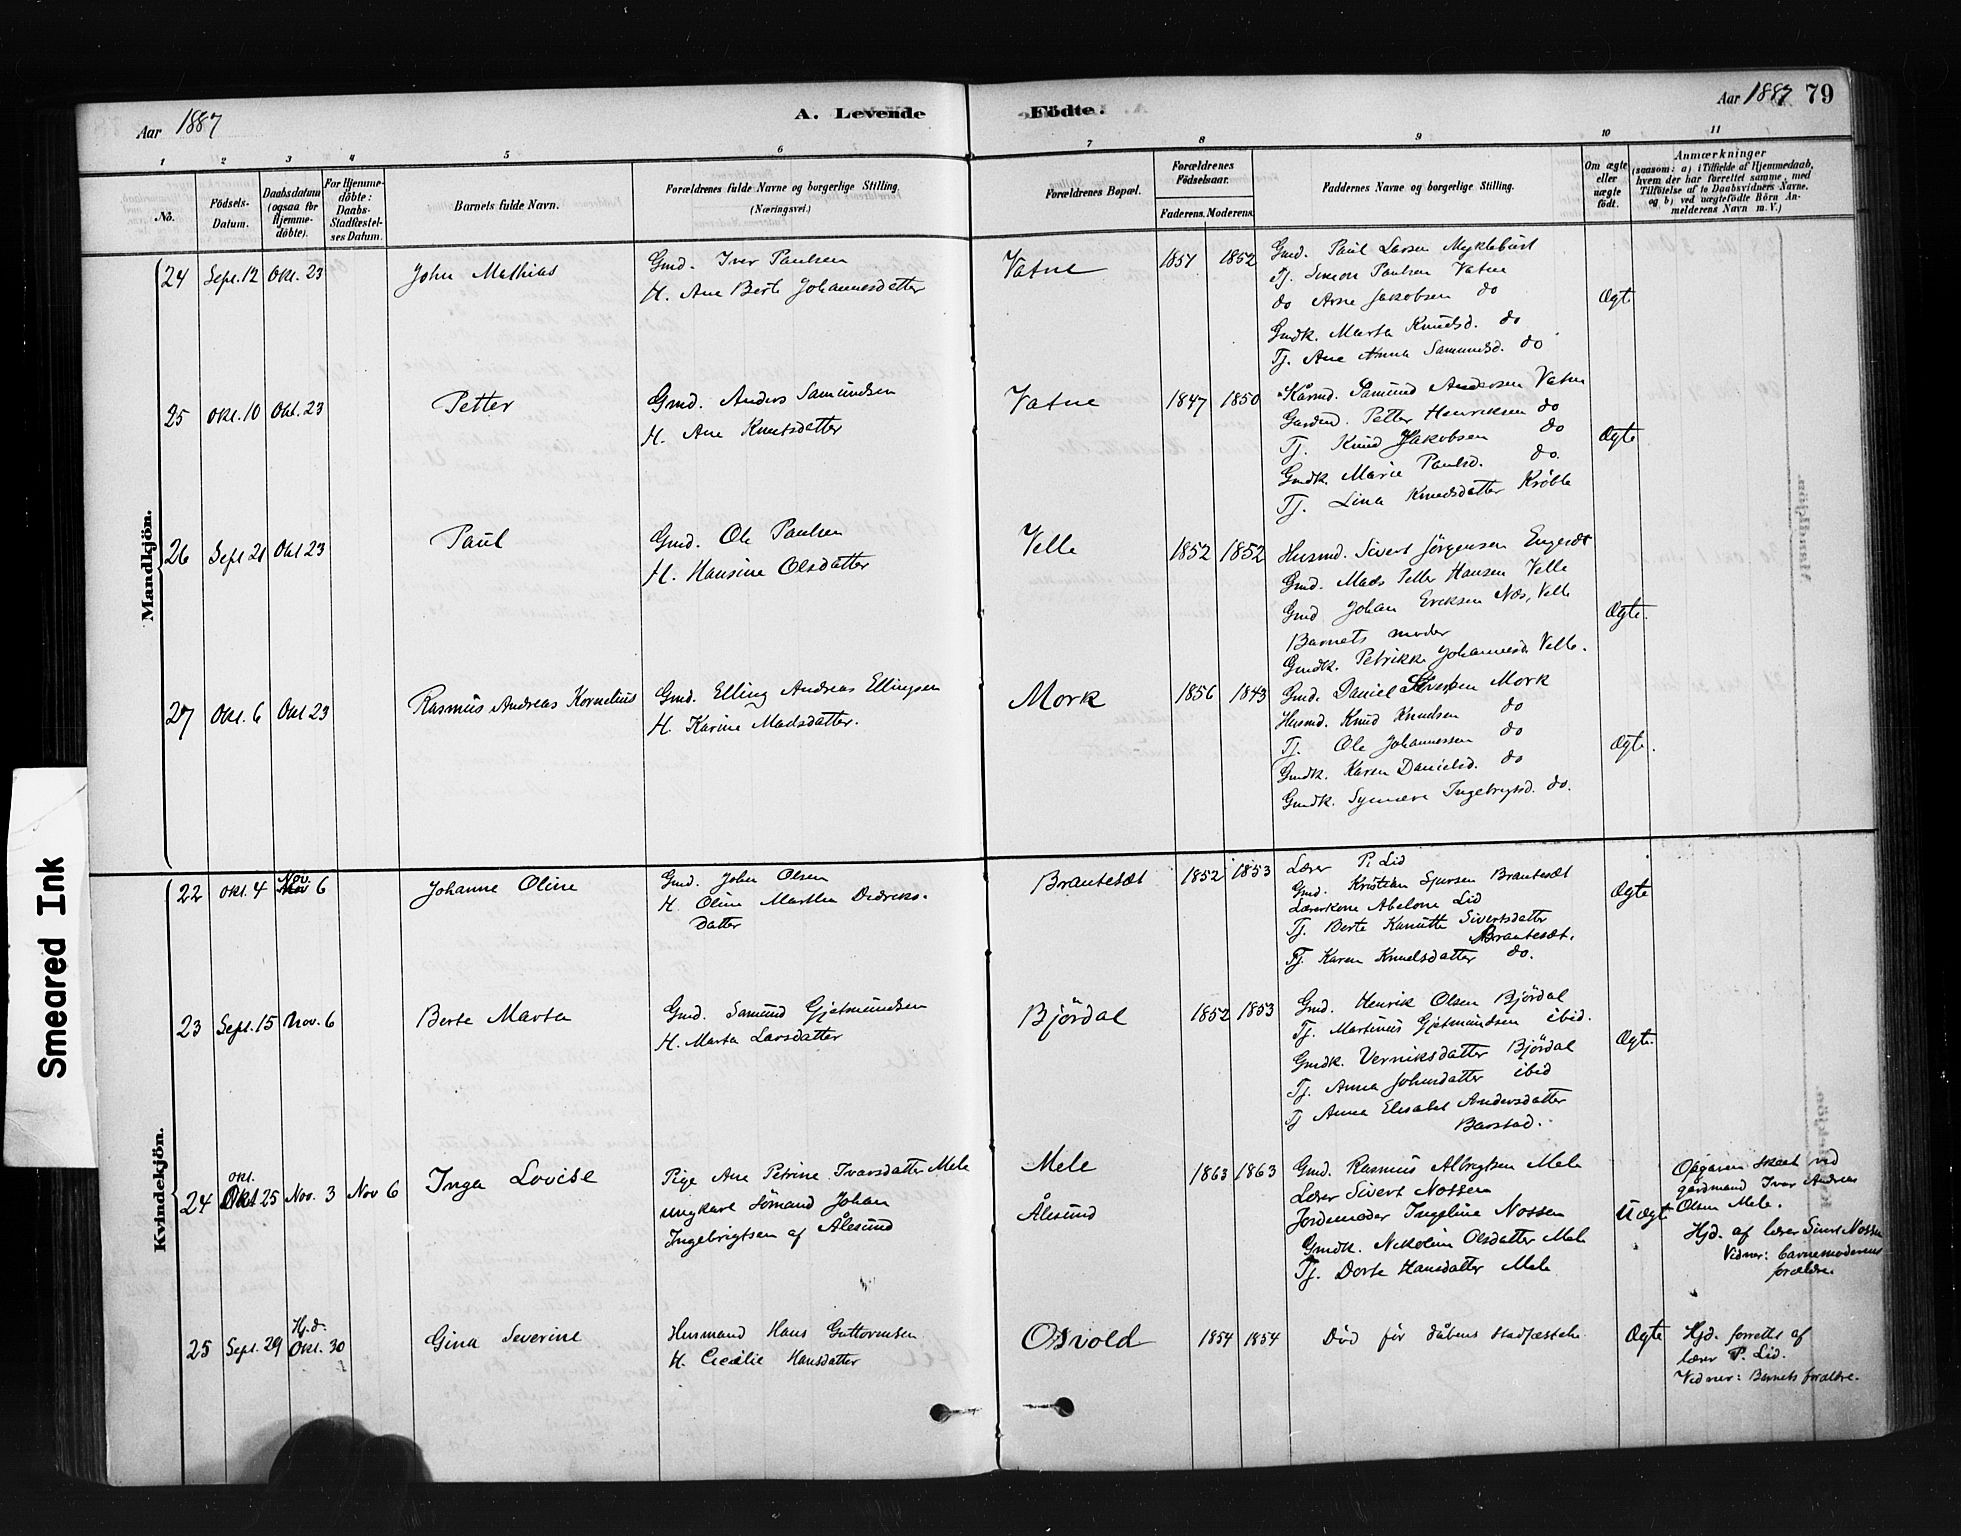 Aar 1887
A. Levende Födte.
Aar 1887 79
1 2 3 4 5 6 7 8 9 10 11
No.
Födsels-Datum.
Daabsdatum (ogsaa for Hjemme-döbte).
For Hjemme-döbte: Daabs-Stadfæstel-ses Datum.
Barnets fulde Navn.
Forældrenes fulde Navne og borgerlige Stilling.
(Næringsvei.)
Forældrenes Bopæl.
Forældrenes Födselsaar.
Faderens. Moderens.
Faddernes Navne og borgerlige Stilling.
Om ægte eller uægte födt.
Anmærkninger
(saasom: a) i Tilfælde af Hjemmedaab,
hvem der har forrettet samme, med
Tilföielse af to Daabsvidners Navne.
og b) ved uægtefödte Börn An-
melderens Navn m. V.)
Mandkjön.
24 Sept. 12 Okt. 23 John Mathias
Gmd. Iver Paulsen
H. Ane Berte Johannesdatter
Vatne 1857 1852
Gmd. Paul Larsen Myklebust
Tj. Simon Paulsen Vatne
do Arne Jakobsen do
Gmdk. Marta Knudsd. do
Tj. Ane Anna Samundsd. do
Ægte
25 Okt. 10 Okt. 23 Petter
Gmd. Anders Samundsen
H. Ane Knutsdatter
Vatne 1847 1850
Kårmd. Samund Andersen Vatne
Gardmd. Petter Henriksen do
Tj. Knud Jakobsen do
Gmdk. Marie Paulsd. do.
Tj. Lina Knudsdatter Kröbla
Ægte
26 Sept 21 Okt 23 Paul
Gmd. Ole Paulsen
H. Hansine Olsdatter
Velle 1852 1852
Husmd. Sivert Jörgensen Engeset
Gmd. Mads Petter Hansen Velle
Gmd Johan Eriksen Næs, Velle
Barnets moder
Gmdk. Petrikke Johannesd. Velle.
Ægte.
27 Okt. 6 Okt 23 Rasmus Andreas Kornelius
Gmd. Elling Andreas Ellingsen
H. Karine Madsdatter.
Mork 1856 1843
Gmd. Daniel Sivertsen Mork
Husmd. Knud Knudsen do
Tj. Ole Johannessen do
Gmdk. Karen Danielsd. do
Gmdk. Synneva Ingebrigtsd. do.
Ægte.
Kvindekjön.
22 Okt. 4 Nov. 6 Johanne Oline
Gmd. John Olsen
H. Oline Marthea Didriks-
datter
Brautesæt 1852 1853
Lærer P. Lid
Gmd. Kristian Sjursen Brautesæt
Lærerkone Abelone Lid
Tj. Berte Kanutte Sivertsdatter
Brautesæt.
Tj. Karen Knudsdatter do.
Ægte
23 Sept. 15 Nov. 6 Berte Marta
Gmd. Samund Gjetmundsen
H. Marta Larsdatter
Björdal 1852 1853
Gmd. Henrik Olsen Björdal
Tj. Martinus Gjetmundsen ibid.
Gmdk. Verniksdatter Björdal
Tj. Anna Johnsdatter ibid
Tj Anna Elisabet Andersdatter
Barstad.
Ægte.
24 Okt. Okt 25 Nov. 3 Nov 6 Inga Lovise
Pige Ane Petrine Ivarsdatter Mele
ungkarl Sömand Johan
Ingebrigtsen af Ålesund
Mele
Ålesund
1863 1863
Gmd. Rasmus Albrigtsen Mele
Lærer Sivert Nossen
Jordemoder Ingeline Nossen
Gmdk. Nikoline Olsdatter Mele
Tj. Dorte Hansdatter Mele
Uægte
Opgaven skeet ved
gårdmand Ivar Andreas
Olsen Mele.
Hjd. af lærer Sivert Nossen
Vidner: barnemoderens
forældre.
25 Sept. 29 Hj.d. Okt. 30 Gina Severine
Husmand Hans Guttormsen
H. Cecilie Hansdatter
Osvold 1854 1854
Död för dåbens stadfæstelse
Ægte
Hjd. forrettet af
lærer P. Lid.
Vidner: Barnets forældre.
Smeared Ink